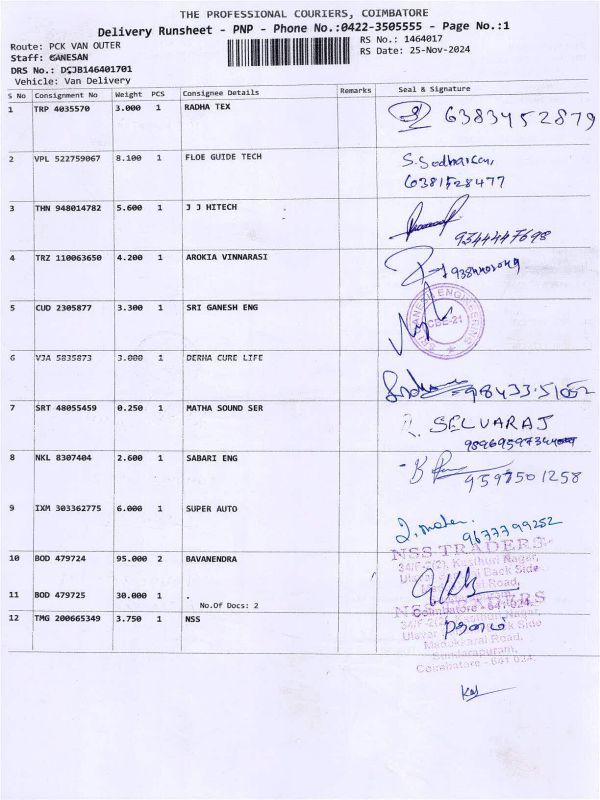 THE PROFESSIONAL COURIERS, COIMBATORE
Delivery Runsheet - PNP - Phone No.:0422-3505555 - Page No.:1
Route: PCK VAN OUTER
RS No.: 1464017
Staff: GANESAN
RS Date: 25-Nov-2024
DRS No.: DSJB146401701
Vehicle: Van Delivery
S No Consignment No Weight PCS Consignee Details Remarks Seal & Signature
1 TRP 4035570 3.000 1 RADHA TEX 6383452879
2 VPL 522759067 8.100 1 FLOE GUIDE TECH
6381528477
3 THN 948014782 5.600 1 J J HITECH
9344447698
4 TRZ 110063650 4.200 1 AROKIA VINNARASI
5 CUD 2305877 3.300 1 SRI GANESH ENG
SRI GANESH ENGINEERING
CBE-21
6 VJA 5835873 3.000 1 DERHA CURE LIFE
98433 51052
7 SRT 48055459 0.250 1 MATHA SOUND SER
R. SELVARAJ
8 NKL 8307404 2.600 1 SABARI ENG
9597501258
9 IXM 303362775 6.000 1 SUPER AUTO
9677799252
NSS TRADERS
10 BOD 479724 95.000 2 BAVANENDRA
Back Side
Road,
11 BOD 479725 30.000 1 .
No.Of Docs: 2
Coimbatore - 641 024.
12 TMG 200665349 3.750 1 NSS
Back Side
Road,
Sundarapuram,
Coimbatore - 641 024.